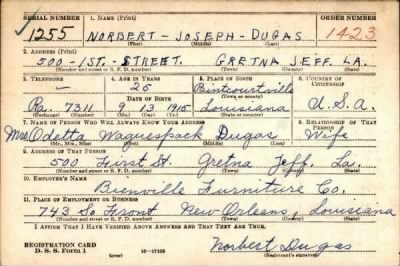 SERIAL NUMBER 1. NAME (Print) ORDER NUMBER
1255 NORBERT - JOSEPH - DUGAS 1423
(First) (Middle) (Last)
2. ADDRESS (Print)
500 - 1ST. - STREET. GRETNA JEFF. LA.
(Number and street or R. F. D. number) (Town) (County) (State)
3. TELEPHONE 4. AGE IN YEARS 5. PLACE OF BIRTH 6. COUNTRY OF CITIZENSHIP
— 25 Paincourtville
DATE OF BIRTH (Town or county)
Ra. 7311 9 13 1915 Louisiana U.S.A.
(Exchange) (Number) (Mo.) (Day) (Yr.) (State or country)
7. NAME OF PERSON WHO WILL ALWAYS KNOW YOUR ADDRESS 8. RELATIONSHIP OF THAT PERSON
Mrs Odetta Waguespack Dugas Wife
(Mr., Mrs., Miss) (First) (Middle) (Last)
9. ADDRESS OF THAT PERSON
500 First St. Gretna Jeff. La.
(Number and street or R. F. D. number) (Town) (County) (State)
10. EMPLOYER'S NAME
Bienville Furniture Co.
11. PLACE OF EMPLOYMENT OR BUSINESS
743 So. Front New Orleans, Louisiana
(Number and street or R. F. D. number) (Town) (County) (State)
I AFFIRM THAT I HAVE VERIFIED ABOVE ANSWERS AND THAT THEY ARE TRUE.
REGISTRATION CARD
D. S. S. Form 1 16—17105 Norbert Dugas
(Registrant's signature)